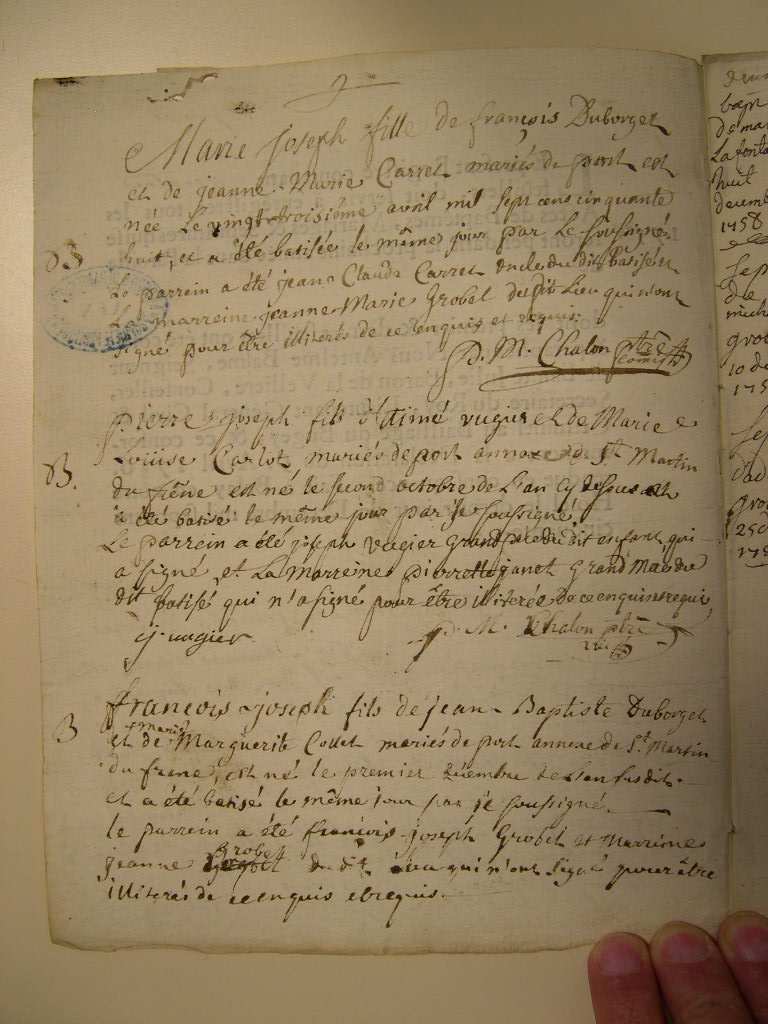 2
Marie joseph fille de françois Duborget
et de jeanne Marie Carret mariés de port est
née Le vingt troisiéme avril mil sept cens cinquante
huit, et a été batisée le même jour par Le soussigné.
B
Le parrein a été jean Claude Carret oncle du dit batisée et
La marreine jeanne Marie Grobel du dit Lieu qui n'ont
signé pour être illiterés de ce enquis et requis.
P. M. Chalon ptre
Pierre joseph fils d'Otimé vugier et de Marie
Louise Carlot mariés de port annexe de St Martin
B.
du frêne est né le second octobre de L'an cy dessus et
a été batisé le même jour par je soussigné.
Le parrein a été joseph vugier grand pere du dit enfant qui
a signé et La Marreine pierrette janet Grand Mae du
dit batisé qui n'a signé pour être illiterée de ce enquise requis
j. vugier
p. M. Chalon ptre
françois joseph fils de jean Baptiste Duborget
B
et de Marie Marguerite Collet mariés de port annexe de St Martin
du frane, est né le premier décembre de L'an susdit
et a été batisé le même jour par je soussigné.
le parrein a été françois joseph Grobel et Marreine
jeanne Grobel du dit Lieu qui n'ont signé pour être
illiterés de ce enquis et requis.
bapt
de mar
La fonta
huit
decemb
1758
sep
de
mich
gro
10 de
175
sep
gro
250
175